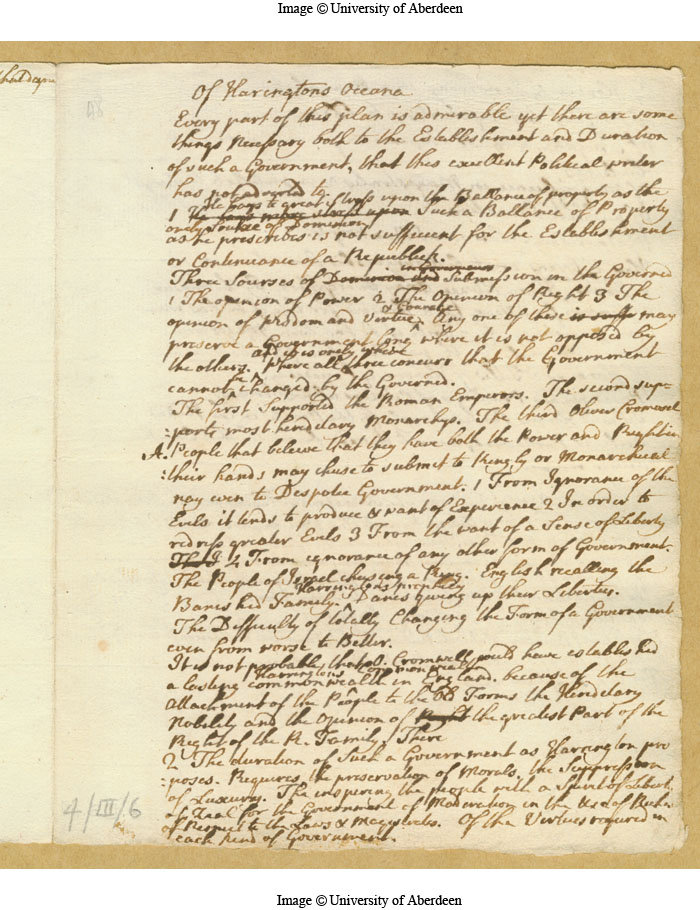 Image © University of Aberdeen
Of Haringtons Oceana
Every part of this plan is admirable yet there are some
things Necessary both to the Establishment and Duration
of such a Government, that this excellent Political writer
has not adverted to.
He lays to great stress upon the Ballance of property as the
1 He lays more stress upon Such a Ballance of Property
onely Source of Dominion
as he prescribes is not sufficient for the Establishment
or Continuance of a Republick.
in Governours
Three Sourses of Dominion and Submission in the Governed
1 The opinion of Power 2 The Opinion of Right 3 The
opinion of Wisdom and Virtue. Any one of these is suff may
preserve a Government long where it is not opposed by
the others. Where all three concurr that the Government
cannot be changed by the Governed.
The first Supported the Roman Emperors. The second sup-
:ports most hereditary Monarchys. The third Oliver Cromwel
A. People that believe that they have both the Power and Right in
:their hands may chuse to submit to Kingly or Monarchical
nay even to Despotic Government. 1 From Ignorance of the
Evils it tends to produce & want of Experience 2 In order to
redress greater Evils 3 From the want of a Sense of Liberty
4 From ignorance of any other form of Government.
The People of Israel chusing a King. English recalling the
Harringtons prophecy
Banished Family. Danes giving up their Liberties.
The Difficulty of totally Changing the Form of a Government
even from worse to Better.
It is not probable that O. Cromwell could have established
Harringtons Commonwealth
a lasting commonwealth in England. because of the
attachment of the People to the old Forms the Hereditary
Nobility and the Opinion of Right the greatest Part of the
Right of the R. Family. There
2 The duration of Such a Government as Harrington pro
:poses. Requires the preservation of Morals, the Suppression
of Luxury. The inspiring the people with a Spirit of Liberty
of Zeal for the Government of Moderation in the use of Riches
of Respect to the Laws & Magistrates. Of the Virtues required in
each kind of Government.
4/III/6
Image © University of Aberdeen